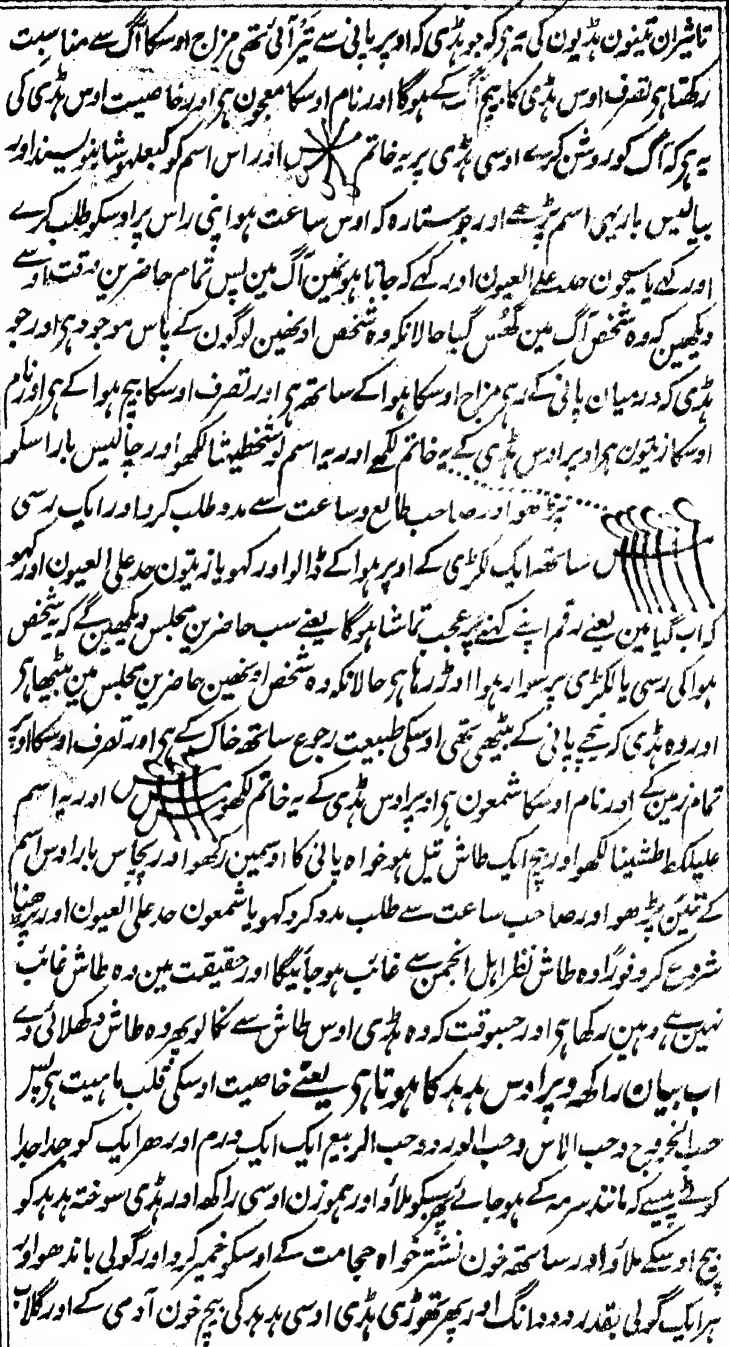 تاثیران تینون ہڈیون کی یہ ہی کہ جو ہڈی کہ اوپر پانی سے تیر آئی تھی مزاج اوسکا آگ سے مناسبت
رکھتا ہی تصرف اوس ہڈی کا بیچ آگ کے ہوگا اور نام اوسکا معجون ہی اور خاصیت اوس ہڈی کی
یہ ہی کہ آگ کو روشن کرے اوسی ہڈی پر یہ خاتم اور اس اسم کو لیسند اور
بیالیس بار یہی اسم پڑھے اور جو ستارہ کہ اوس ساعت ہو اپنی راس پر اوسکو طلب کرے
اور کہے یا سیحون حد علے العیون اور کہے کہ جاتا ہو نمین آگ مین پس تمام حاضرین وقت اوسے
دیکھین کہ وہ شخص آگ مین گھس گیا حالانکہ وہ شخص اونھین لوگون کے پاس موجود ہی اور جو
ہڈی کہ درمیان پانی کے رہی مزاج اوسکا ہوا کے ساتھ ہی اور تصرف اوسکا بیچ ہوا کے ہی اور نام
اوسکا زیتون ہی اوپر اوس ہڈی کے یہ خاتم لکھے اور یہ اسم لکھو اور چالیس بار اسکو
پڑھو اور صاحب طالع و ساعت سے مدد طلب کرو اور ایک رسی
ساتھہ ایک لکڑی کے اوپر ہوا کے ڈالو اور کہو یا زیتون حد علی العیون اور کہو
کہ اب گیا مین یعنے رقم اپنے کہنے پر عجب تماشا ہوگا یعنے سب حاضرین مجلس دیکھین گے کہ یہ شخص
ہوا کی رسی یا لکڑی پر سوار ہوا اوڑ رہا ہی حالانکہ وہ شخص اونھین حاضرین مجلس مین بیٹھا ہی
اور وہ ہڈی کہ نیچے پانی کے بیٹھی تھی اوسکی طبیعت رجوع ساتھ خاک کے ہی اور تصرف اوسکا اوپر
تمام زمین کے اور نام اوسکا شمعون ہی اوپر اوس ہڈی کے یہ خاتم لکھو اور یہ اسم
لکھو اور بیچ ایک طاش تیل ہو خواہ پانی کا اوسمین رکھو اور پچاس بار اوس اسم
کے تئین پڑھو اور صاحب ساعت سے طلب مدد کرو کہو یا شمعون حد علی العیون اور پڑھنا
شروع کرو فوراً وہ طاش نظر اہل انجمن سے غائب ہو جائیگا اور حقیقت مین وہ طاش غائب
نہین ہے وہین رکھا ہی اور جسوقت کہ وہ ہڈی اوس طاش سے نکالو پھر وہ طاش دکھلائی دے
اب بیان راکھ و پر اوس ہدہد کا ہوتا ہی یعنے خاصیت اوسکی قلب ماہیت ہی پس
حب الخروع و حب الاس و حب الورد و حب الربیع ایک ایک درم اور ہر ایک کو جدا جدا
کوٹے پیسے کہ مانند سرمہ کے ہو جائے پھر سبکو ملاؤ اور ہموزن اوسی راکھ اور ہڈی سوختہ ہدہد کو
بیچ اوسکے ملاؤ اور ساتھ خون نشتر خواہ حجامت کے اوسکو خمیر کرو اور گولی باندھو اور
ہر ایک گولی بقدر دو دانگ اور پھر تھوڑی ہڈی اوسی ہدہد کی بیچ خون آدمی کے اور گلاب